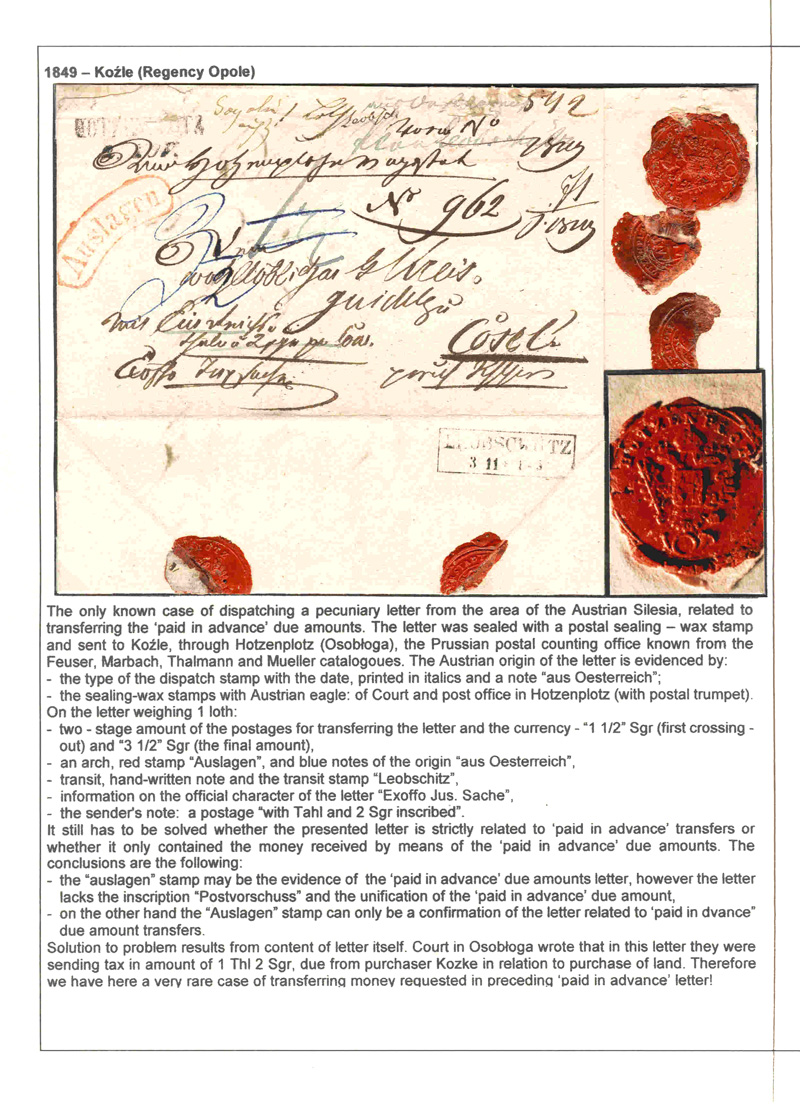 1849 – Koźle (Regency Opole)
542
Nº 962
Auslagen
Kreis
Cosel
LEOBSCHÜTZ
3 11
The only known case of dispatching a pecuniary letter from the area of the Austrian Silesia, related to
transferring the ‘paid in advance’ due amounts. The letter was sealed with a postal sealing – wax stamp
and sent to Koźle, through Hotzenplotz (Osobłoga), the Prussian postal counting office known from the
Feuser, Marbach, Thalmann and Mueller catalogoues. The Austrian origin of the letter is evidenced by:
- the type of the dispatch stamp with the date, printed in italics and a note “aus Oesterreich”;
- the sealing-wax stamps with Austrian eagle: of Court and post office in Hotzenplotz (with postal trumpet).
On the letter weighing 1 loth:
- two - stage amount of the postages for transferring the letter and the currency - “1 1/2” Sgr (first crossing -
out) and “3 1/2” Sgr (the final amount),
- an arch, red stamp “Auslagen”, and blue notes of the origin “aus Oesterreich”,
- transit, hand-written note and the transit stamp “Leobschitz”,
- information on the official character of the letter “Exoffo Jus. Sache”,
- the sender's note: a postage “with Tahl and 2 Sgr inscribed”.
It still has to be solved whether the presented letter is strictly related to ‘paid in advance’ transfers or
whether it only contained the money received by means of the ‘paid in advance’ due amounts. The
conclusions are the following:
- the “auslagen” stamp may be the evidence of the ‘paid in advance’ due amounts letter, however the letter
lacks the inscription “Postvorschuss” and the unification of the ‘paid in advance’ due amount,
- on the other hand the “Auslagen” stamp can only be a confirmation of the letter related to ‘paid in dvance”
due amount transfers.
Solution to problem results from content of letter itself. Court in Osobłoga wrote that in this letter they were
sending tax in amount of 1 Thl 2 Sgr, due from purchaser Kozke in relation to purchase of land. Therefore
we have here a very rare case of transferring money requested in preceding ‘paid in advance’ letter!